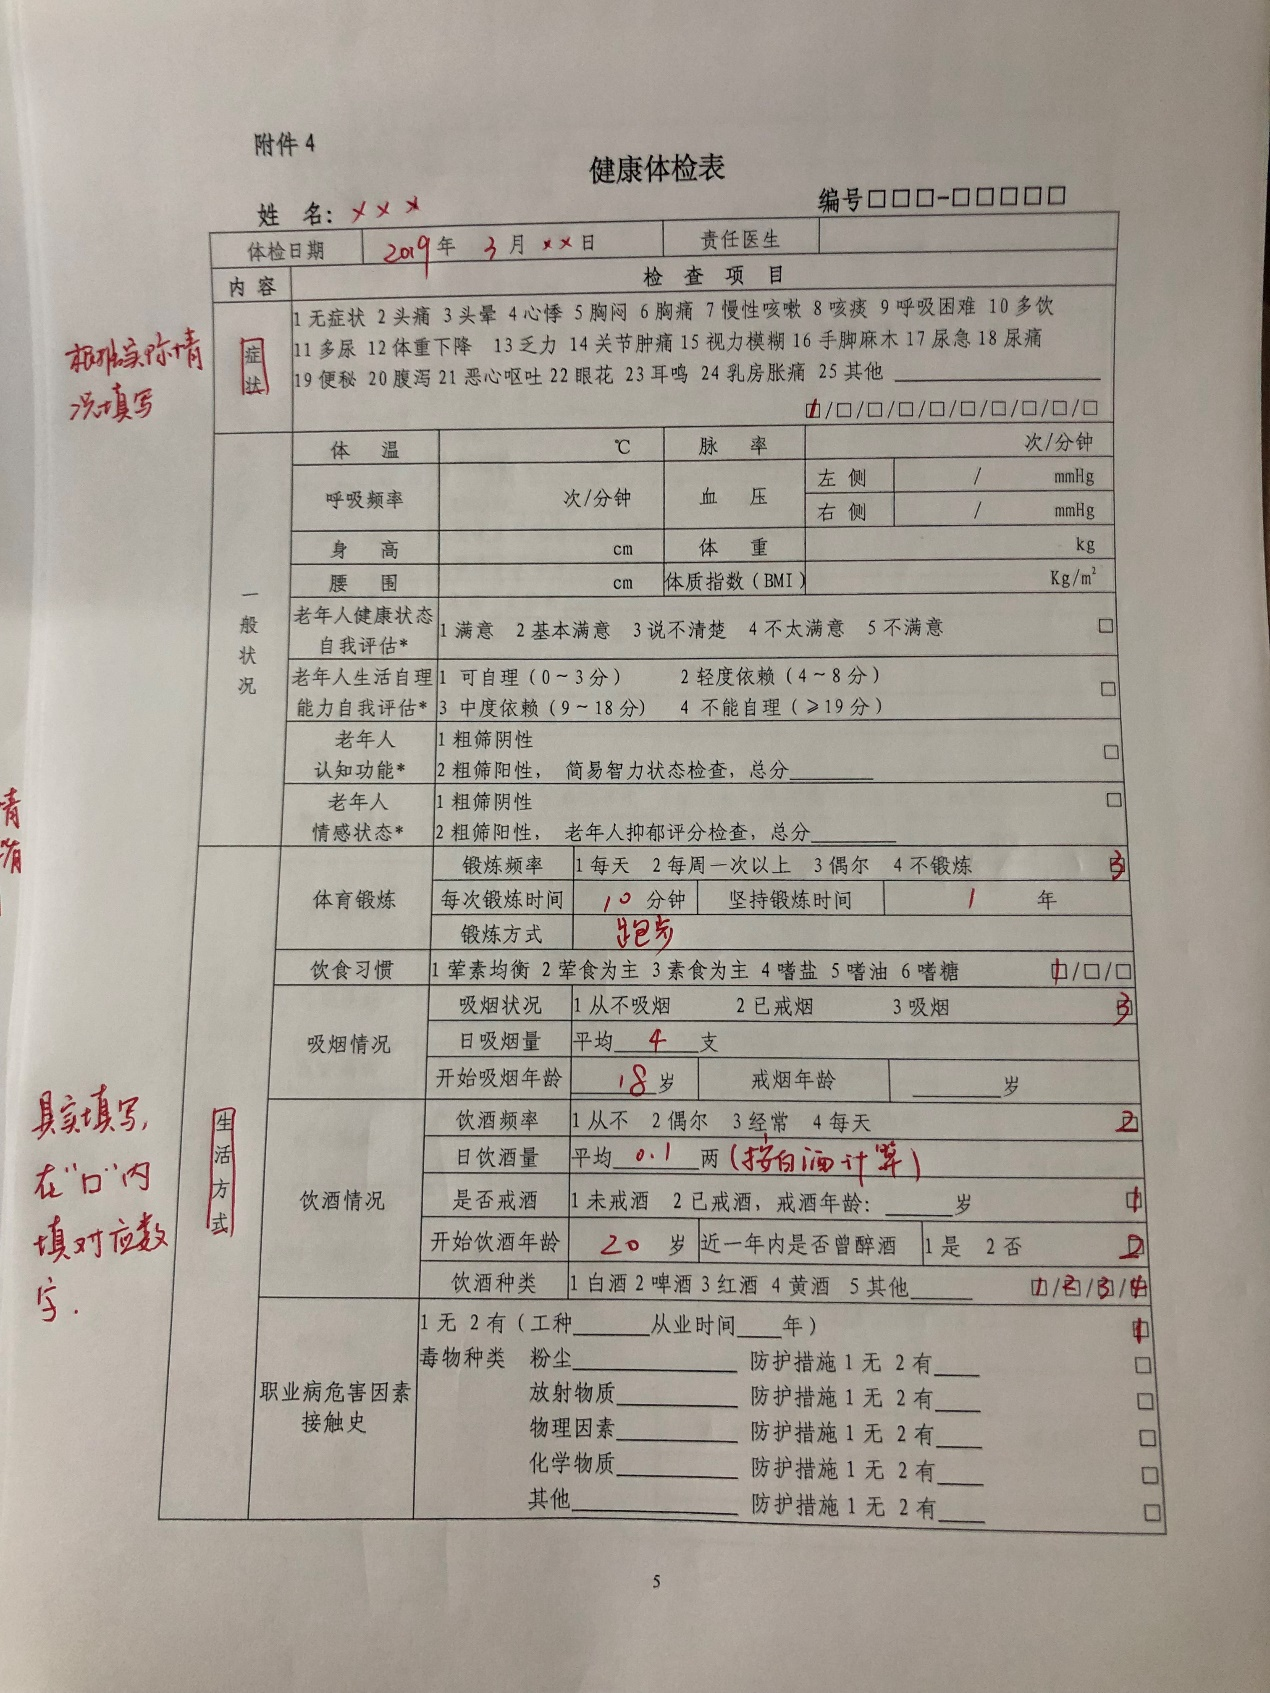 附件4
健康体检表
姓 名：××× 编号□□□-□□□□□
体检日期 2019年 3月 ××日 责任医生
内 容 检 查 项 目
根据实际情况填写
症状
1 无症状 2 头痛 3 头晕 4 心悸 5 胸闷 6 胸痛 7 慢性咳嗽 8 咳痰 9 呼吸困难 10 多饮
11 多尿 12 体重下降 13 乏力 14 关节肿痛 15 视力模糊 16 手脚麻木 17 尿急 18 尿痛
19 便秘 20 腹泻 21 恶心呕吐 22 眼花 23 耳鸣 24 乳房胀痛 25 其他
1/□/□/□/□/□/□/□/□/□
一般状况
体 温 ℃ 脉 率 次/分钟
呼吸频率 次/分钟 血 压 左 侧 / mmHg
右 侧 / mmHg
身 高 cm 体 重 kg
腰 围 cm 体质指数（BMI） Kg/m²
老年人健康状态自我评估* 1 满意 2 基本满意 3 说不清楚 4 不太满意 5 不满意 □
老年人生活自理能力自我评估* 1 可自理（0～3分） 2 轻度依赖（4～8分）
3 中度依赖（9～18分） 4 不能自理（≥19分） □
老年人认知功能* 1 粗筛阴性
2 粗筛阳性， 简易智力状态检查，总分 □
老年人情感状态* 1 粗筛阴性 □
2 粗筛阳性， 老年人抑郁评分检查，总分
生活方式
具实填写，
在“口”内
填对应数
字.
体育锻炼
锻炼频率 1 每天 2 每周一次以上 3 偶尔 4 不锻炼 3
每次锻炼时间 10 分钟 坚持锻炼时间 1 年
锻炼方式 跑步
饮食习惯 1 荤素均衡 2 荤食为主 3 素食为主 4 嗜盐 5 嗜油 6 嗜糖 1/□/□
吸烟情况
吸烟状况 1 从不吸烟 2 已戒烟 3 吸烟 3
日吸烟量 平均 4 支
开始吸烟年龄 18 岁 戒烟年龄 岁
饮酒情况
饮酒频率 1 从不 2 偶尔 3 经常 4 每天 2
日饮酒量 平均 0.1 两（按白酒计算）
是否戒酒 1 未戒酒 2 已戒酒，戒酒年龄： 岁 1
开始饮酒年龄 20 岁 近一年内是否曾醉酒 1 是 2 否 2
饮酒种类 1 白酒 2 啤酒 3 红酒 4 黄酒 5 其他 1/2/3/4
职业病危害因素接触史
1 无 2 有（工种 从业时间 年） 1
毒物种类 粉尘 防护措施 1 无 2 有 □
放射物质 防护措施 1 无 2 有 □
物理因素 防护措施 1 无 2 有 □
化学物质 防护措施 1 无 2 有 □
其他 防护措施 1 无 2 有 □
5